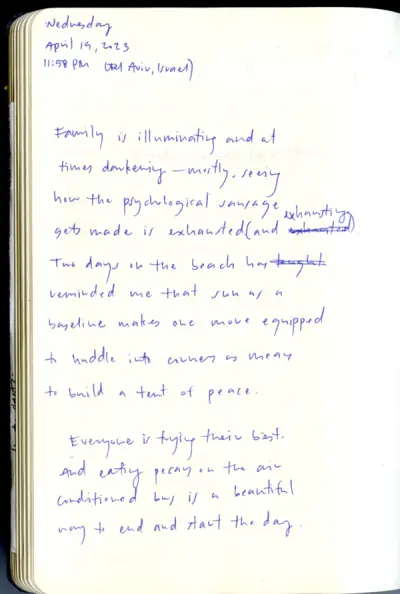 Wednesday
April 19, 2023
11:58 PM (Tel Aviv, Israel)
Family is illuminating and at
times darkening — mostly, seeing
how the psychological sausage
gets made is exhausted (and exhausting exhausted)
Two days on the beach has taught
reminded me that sun as a
baseline makes one more equipped
to huddle into corners as means
to build a tent of peace.
Everyone is trying their best.
And eating pecans on the air
conditioned bus is a beautiful
way to end and start the day.